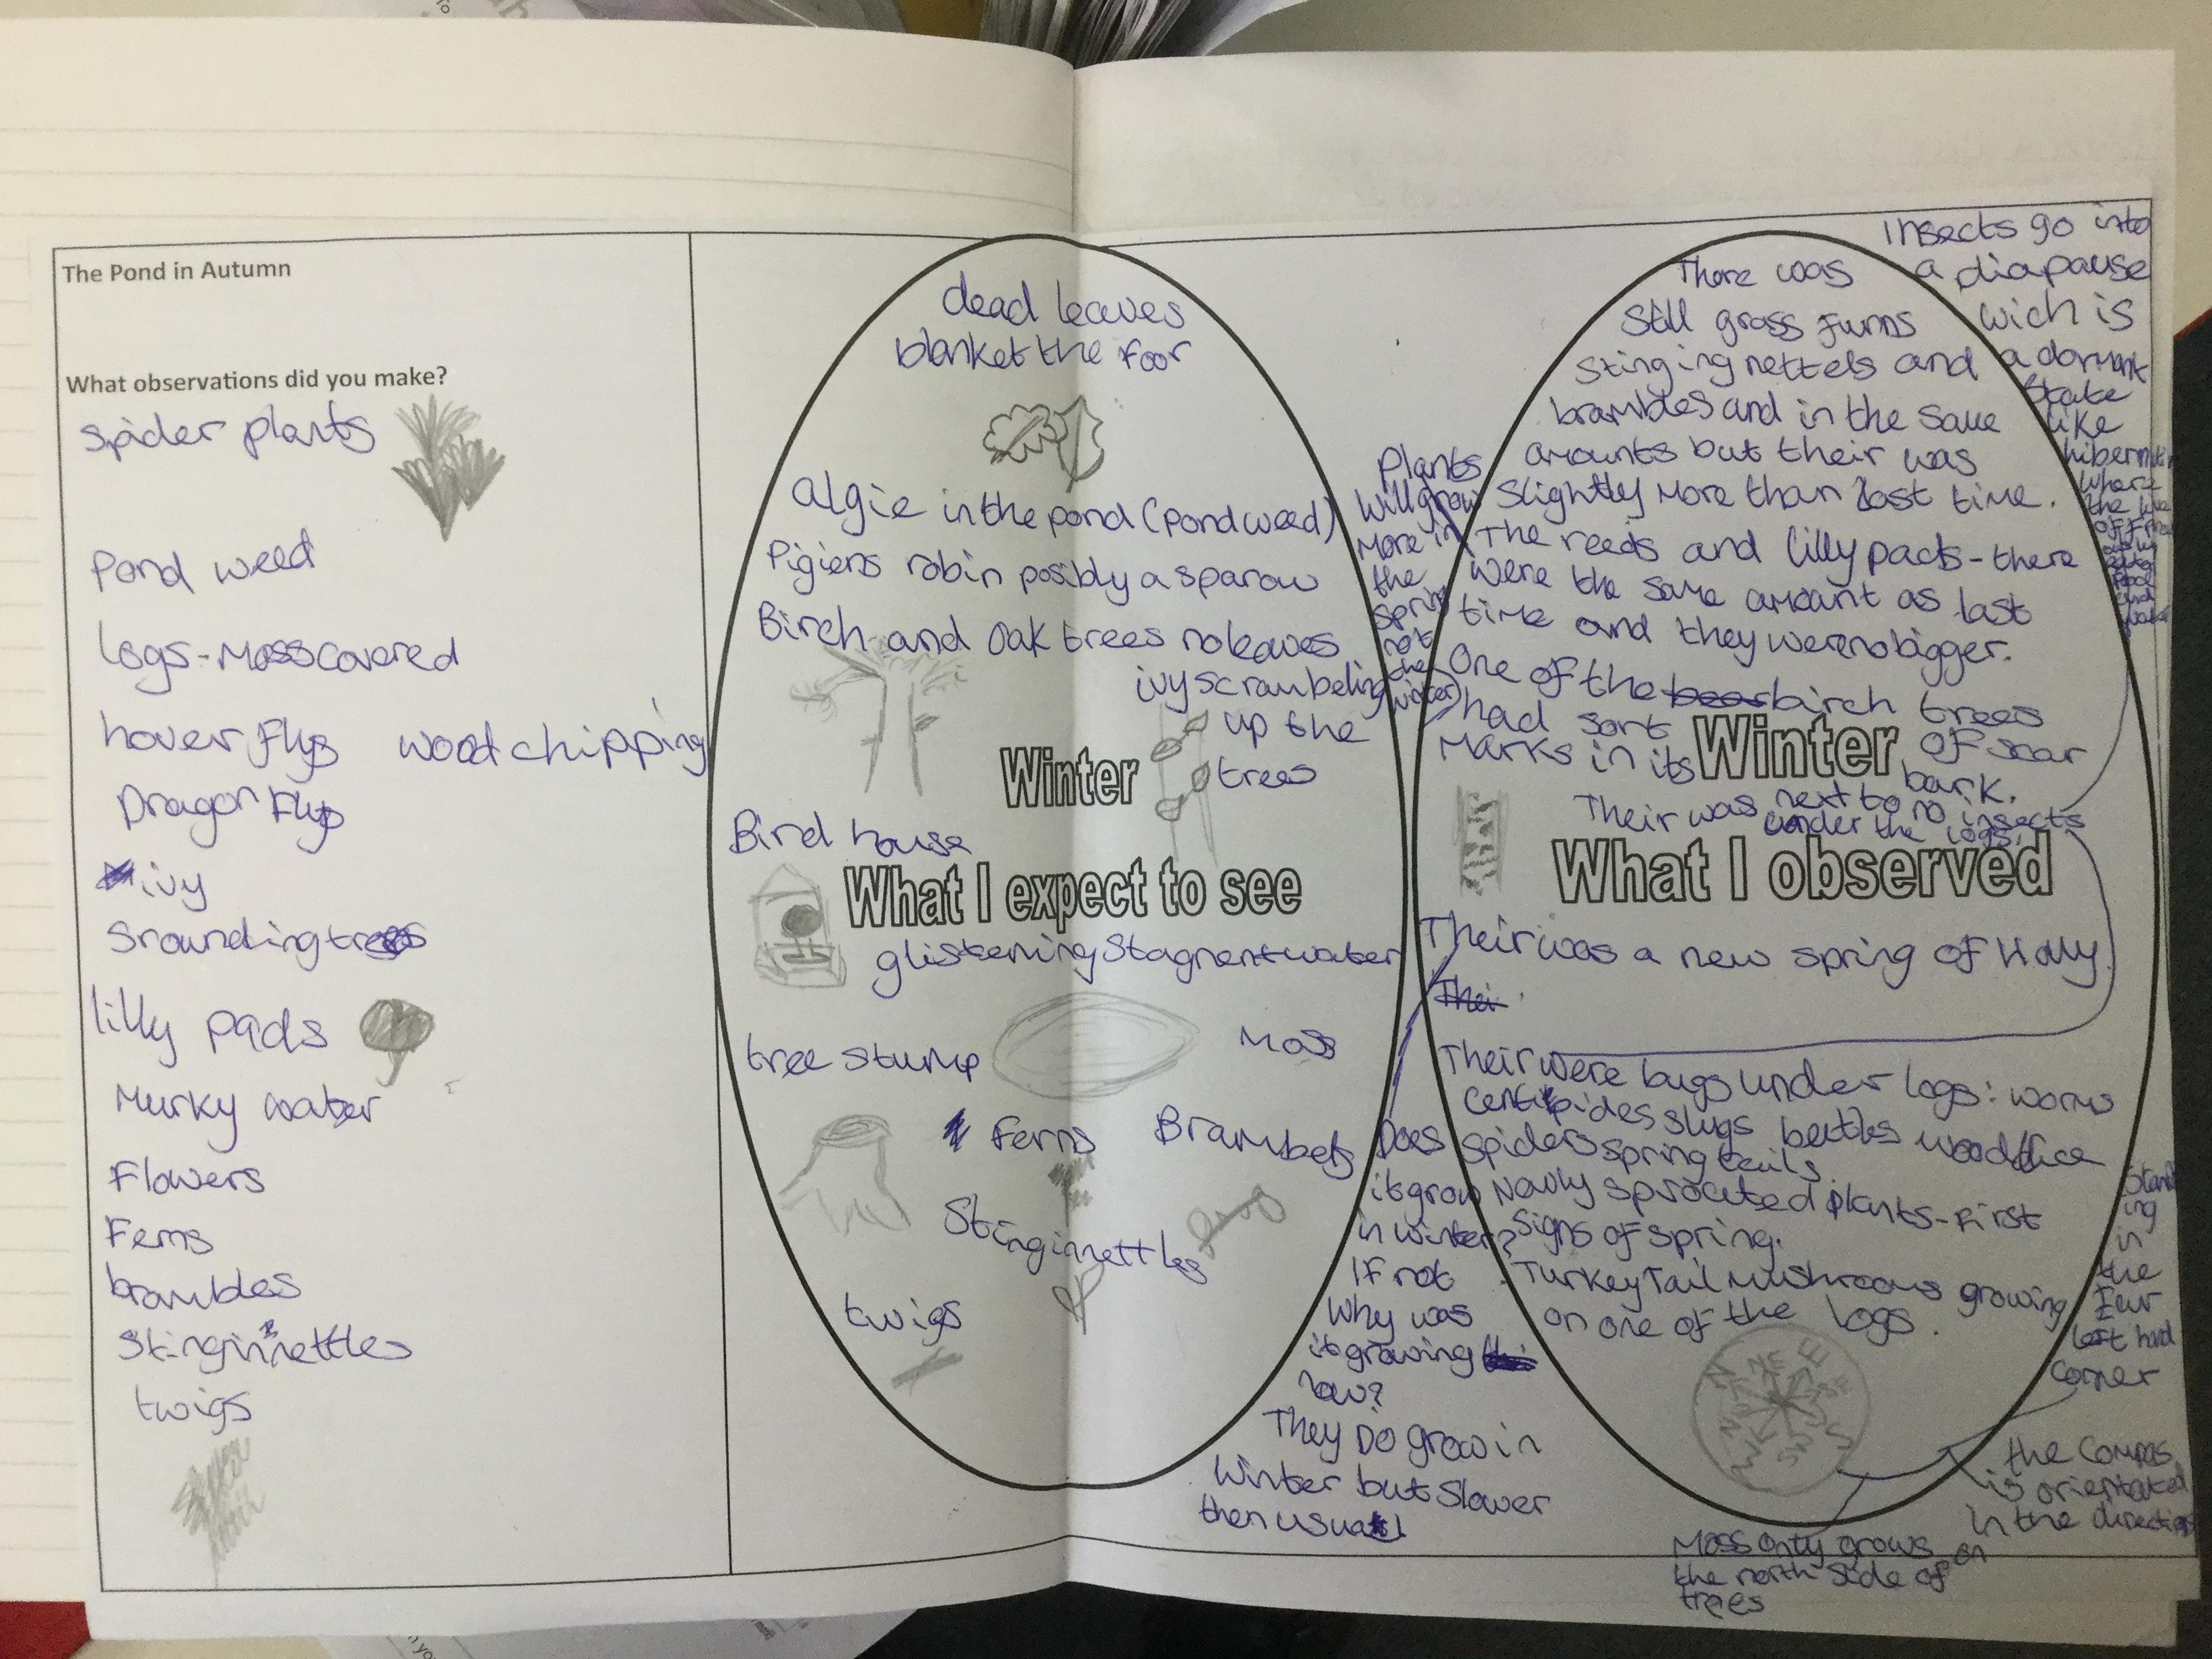 The Pond in Autumn
What observations did you make?
spider plants
Pond weed
logs-Mosscovered
hover flys woodchipping
Dragon flys
ivy
Srounding trees
lilly pads
Murky water
Flowers
Ferns
brambles
Stinginnettles
twigs
dead leaves
blanket the foor
algie in the pond (pond weed)
Pigiens robin posibly a sparow
Birch and Oak trees noleaves
ivy scrambeling
up the
trees
Winter
Bird house
What I expect to see
glistening Stagnent water
tree stump
Moss
Ferns Brambels
Stinginnettles
twigs
Plants
will grow
More in
the
spring
not
the
winter)
There was
Still grass furns
Stinging nettels and
brambles and in the same
amounts but their was
slightly more than last time.
The reeds and lilly pads-there
were the same amount as last
time and they werenobigger.
One of the birch trees
had sort of scar
Marks in its bark.
Winter
Their was next to no insects
under the logs.
What I observed
Their was a new spring of Holly
Thei
Their were bugs under logs: worms
centipides slugs beetles woodlice
spiders springtails
Newly sprouted plants-First
signs of spring.
Turkey Tail Mushrooms growing
on one of the logs.
N NE E SE S SW W NW
Does
it grow
in winter?
If not
Why was
it growing
now?
They Do grow in
Winter but Slower
then usual
Insects go into
a diapause
wich is
a dormant
State
like
where
Standing
in
the
Fur
left hand
corner
the Compas
is orientated
in the direction
Moss only grows on
the north side of
trees